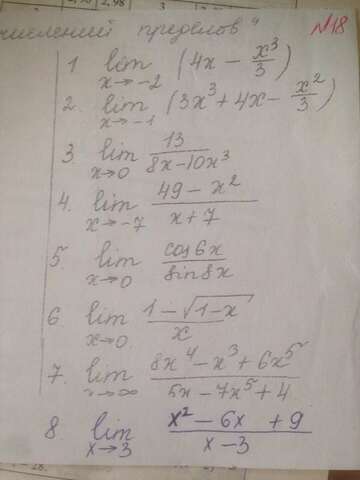 числений пределов 4
№18
1 lim x→-2 (4x - x³/3)
2. lim x→-1 (3x³ + 4x - x²/3)
3. lim x→0 13/(8x-10x³)
4. lim x→-7 (49 - x²)/(x + 7)
5 lim x→0 cos6x/sin8x
6 lim x→0 (1 - √(1-x))/x
7. lim x→∞ (8x⁴ - x³ + 6x⁵)/(5x - 7x⁵ + 4)
8. lim x→3 (x² - 6x + 9)/(x - 3)